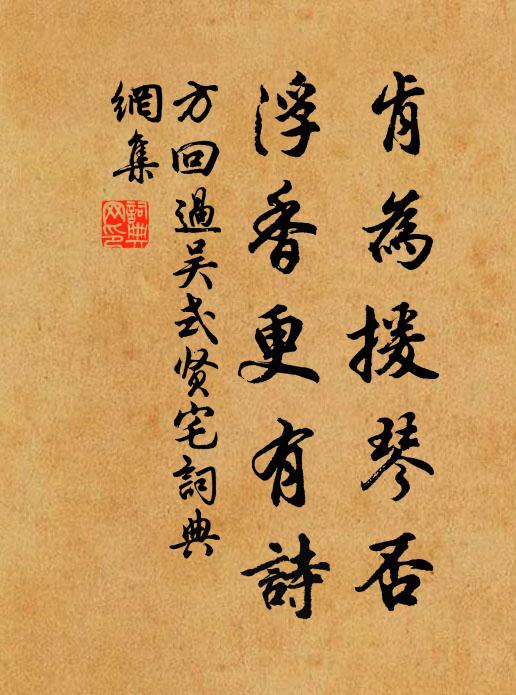 肯為援琴否
浮香更有詩
方回過吴式贤宅詞典
網集
詞典
网印